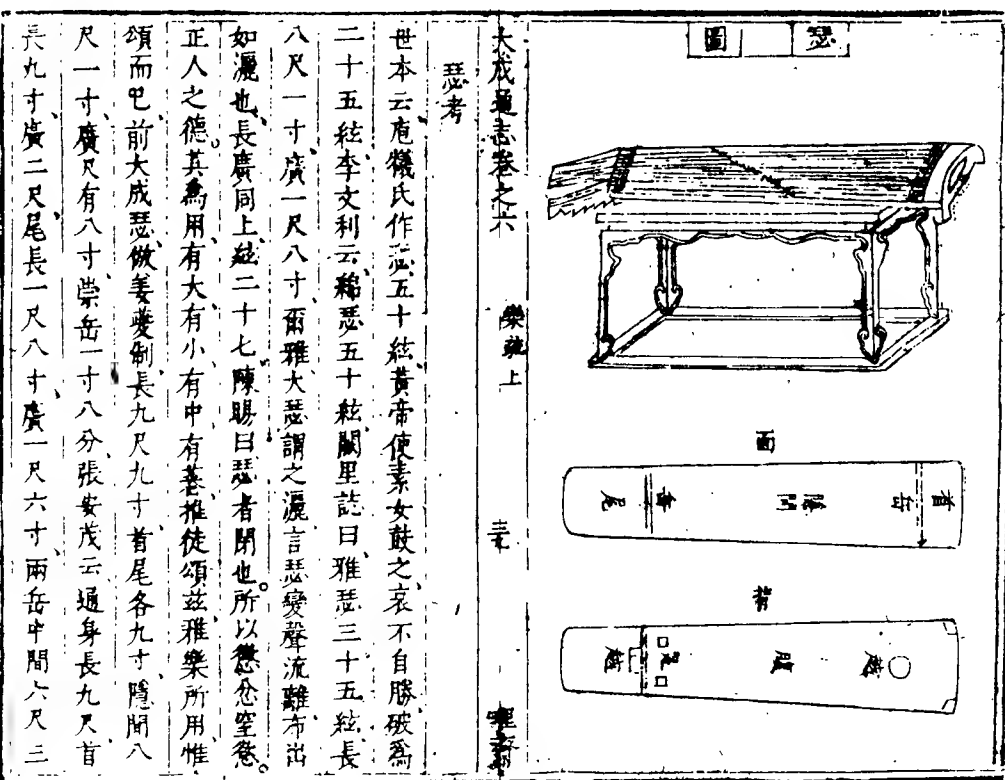 瑟圖
面
首岳 隱間 岳尾
背
越 腹 足 越
大成通志卷之六 樂疏上
瑟考
世本云庖犧氏作瑟五十絃黃帝使素女鼓之哀不自勝破爲
二十五絃李文利云瑟五十絃闕里誌曰雅瑟三十五絃長
八尺一寸廣一尺八寸爾雅大瑟謂之灑言瑟變聲流離布出
如灑也、長廣同上、絃二十七陳暘曰瑟者閉也。所以懲忿窒慾。
正人之德。其爲用、有大、有小、有中、有徒頌、茲雅樂所用惟
頌而已、前大成瑟、倣姜夔制、長九尺九寸、首尾各九寸、隱間八
尺一寸、廣尺有八寸、崇岳一寸八分、張安茂云、通身長九尺、首
長九寸、廣二尺、尾長一尺八寸、廣一尺六寸、兩岳中間六尺三